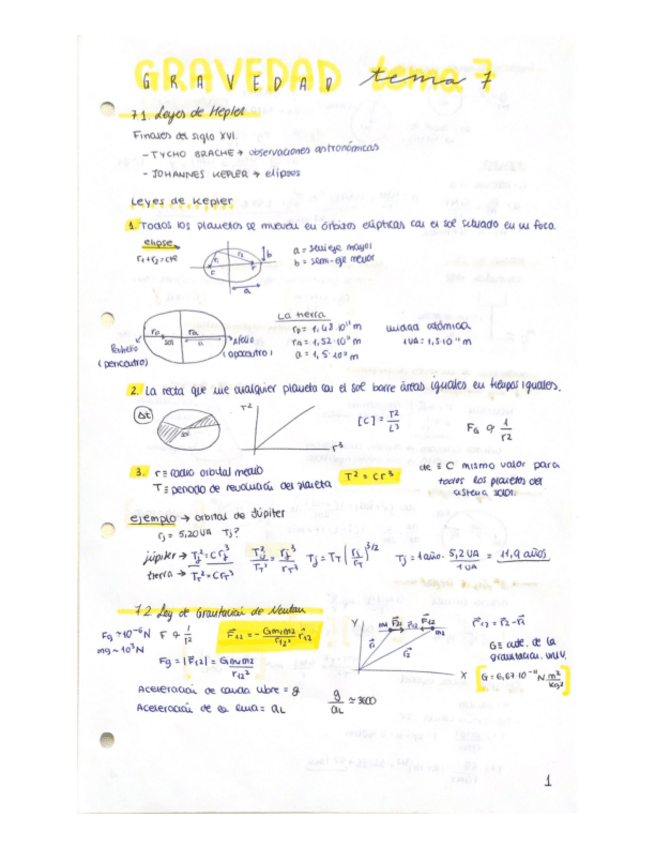 GRAVEDAD tema 7
7.1. Leyes de Kepler
Finales del siglo XVI.
- TYCHO BRACHE → observaciones astronómicas
- JOHANNES KEPLER → elipses
Leyes de Kepler
1. Todos los planetas se mueven en órbitas elípticas con el sol situado en un foco.
elipse
r₁+r₂=cte
a = semieje mayor
b = semi-eje menor
r₁ r₂ b
a
La tierra
Perihelio
(pericentro)
rp ra
sol a
Afelio
(apocentro)
ra = 1,52·10¹¹ m
a = 1,5·10¹¹ m
1UA = 1,5·10¹¹ m
2. La recta que une cualquier planeta con el sol barre áreas iguales en tiempos iguales.
Δt
sol
T²
r³
[C] = T²/L³
F_G ∝ 1/r²
3. r ≡ radio orbital medio
T ≡ periodo de revolución del planeta
T² = Cr³
de ≡ C mismo valor para
todos los planetas del
sistema solar.
ejemplo → orbital de Júpiter
rⱼ = 5,20 UA Tⱼ?
júpiter → Tⱼ² = C rⱼ³
tierra → T_T² = C r_T³
Tⱼ²/T_T² = rⱼ³/r_T³
Tⱼ = T_T (rⱼ/r_T)^3/2
Tⱼ = 1 año · 5,2 UA/1 UA = 11,9 años
7.2. Ley de Gravitación de Newton
Fg ~ 10⁻⁶ N F ∝ 1/r²
mg ~ 10³ N
F⃗₁₂ = - Gm₁m₂/r₁₂² r̂₁₂
Fg = |F⃗₁₂| = Gm₁m₂/r₁₂²
Y m₁ F⃗₂₁ r⃗₁₂ F⃗₁₂
m₂
r⃗₁ r⃗₂
X
r⃗₁₂ = r⃗₂ - r⃗₁
G ≡ cte. de la
gravitación univ.
[G = 6,67·10⁻¹¹ N m²/kg²]
Aceleración de caída libre = g
Aceleración de la luna = a_L
g/a_L ≃ 3600
1